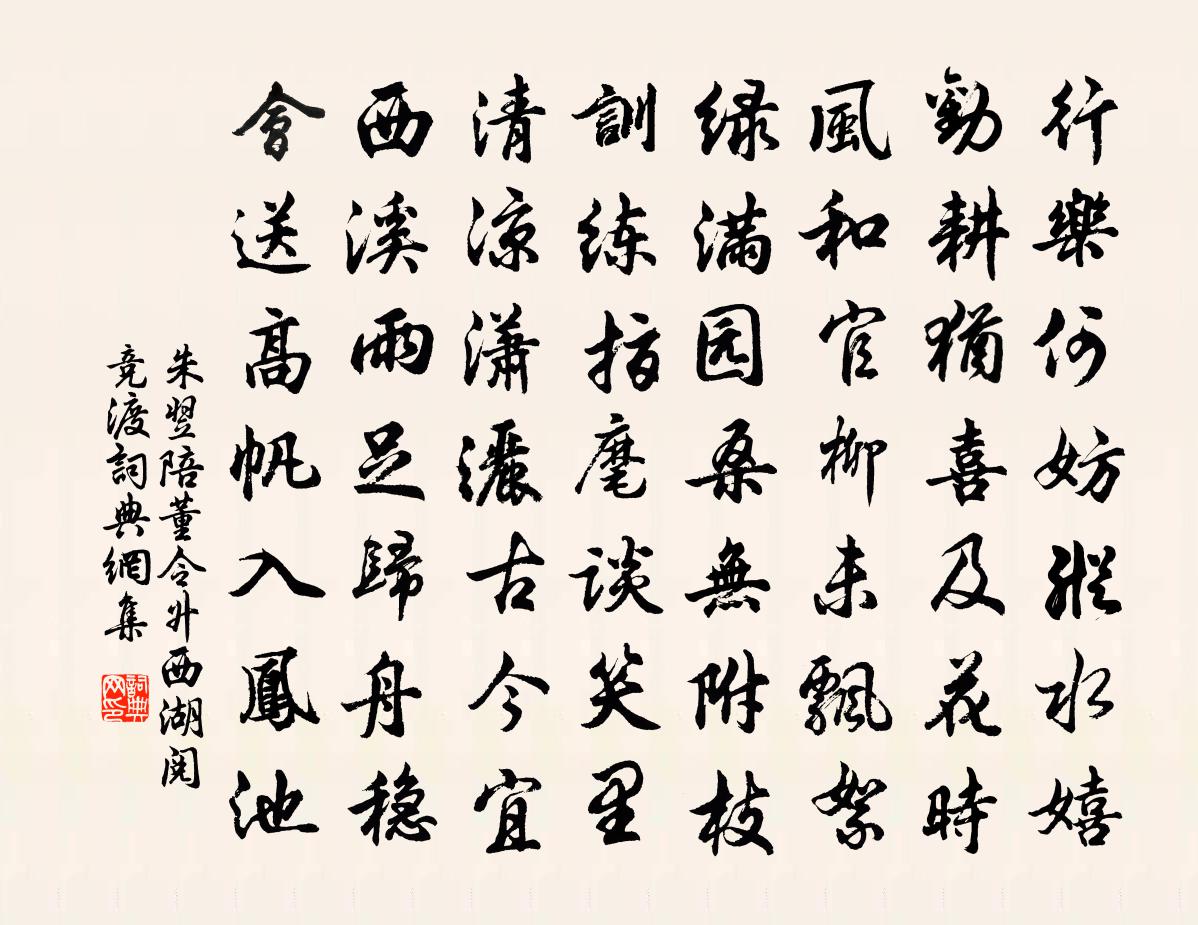 行樂何妨縱水嬉
勸耕猶喜及花時
風和官柳未飄絮
緑滿园桑無附枝
訓练指麾談笑里
清凉瀟灑古今宜
西溪雨足歸舟稳
會送高帆入鳳池
朱翌陪董令升西湖阅
竞渡詞典網集
詞典网印